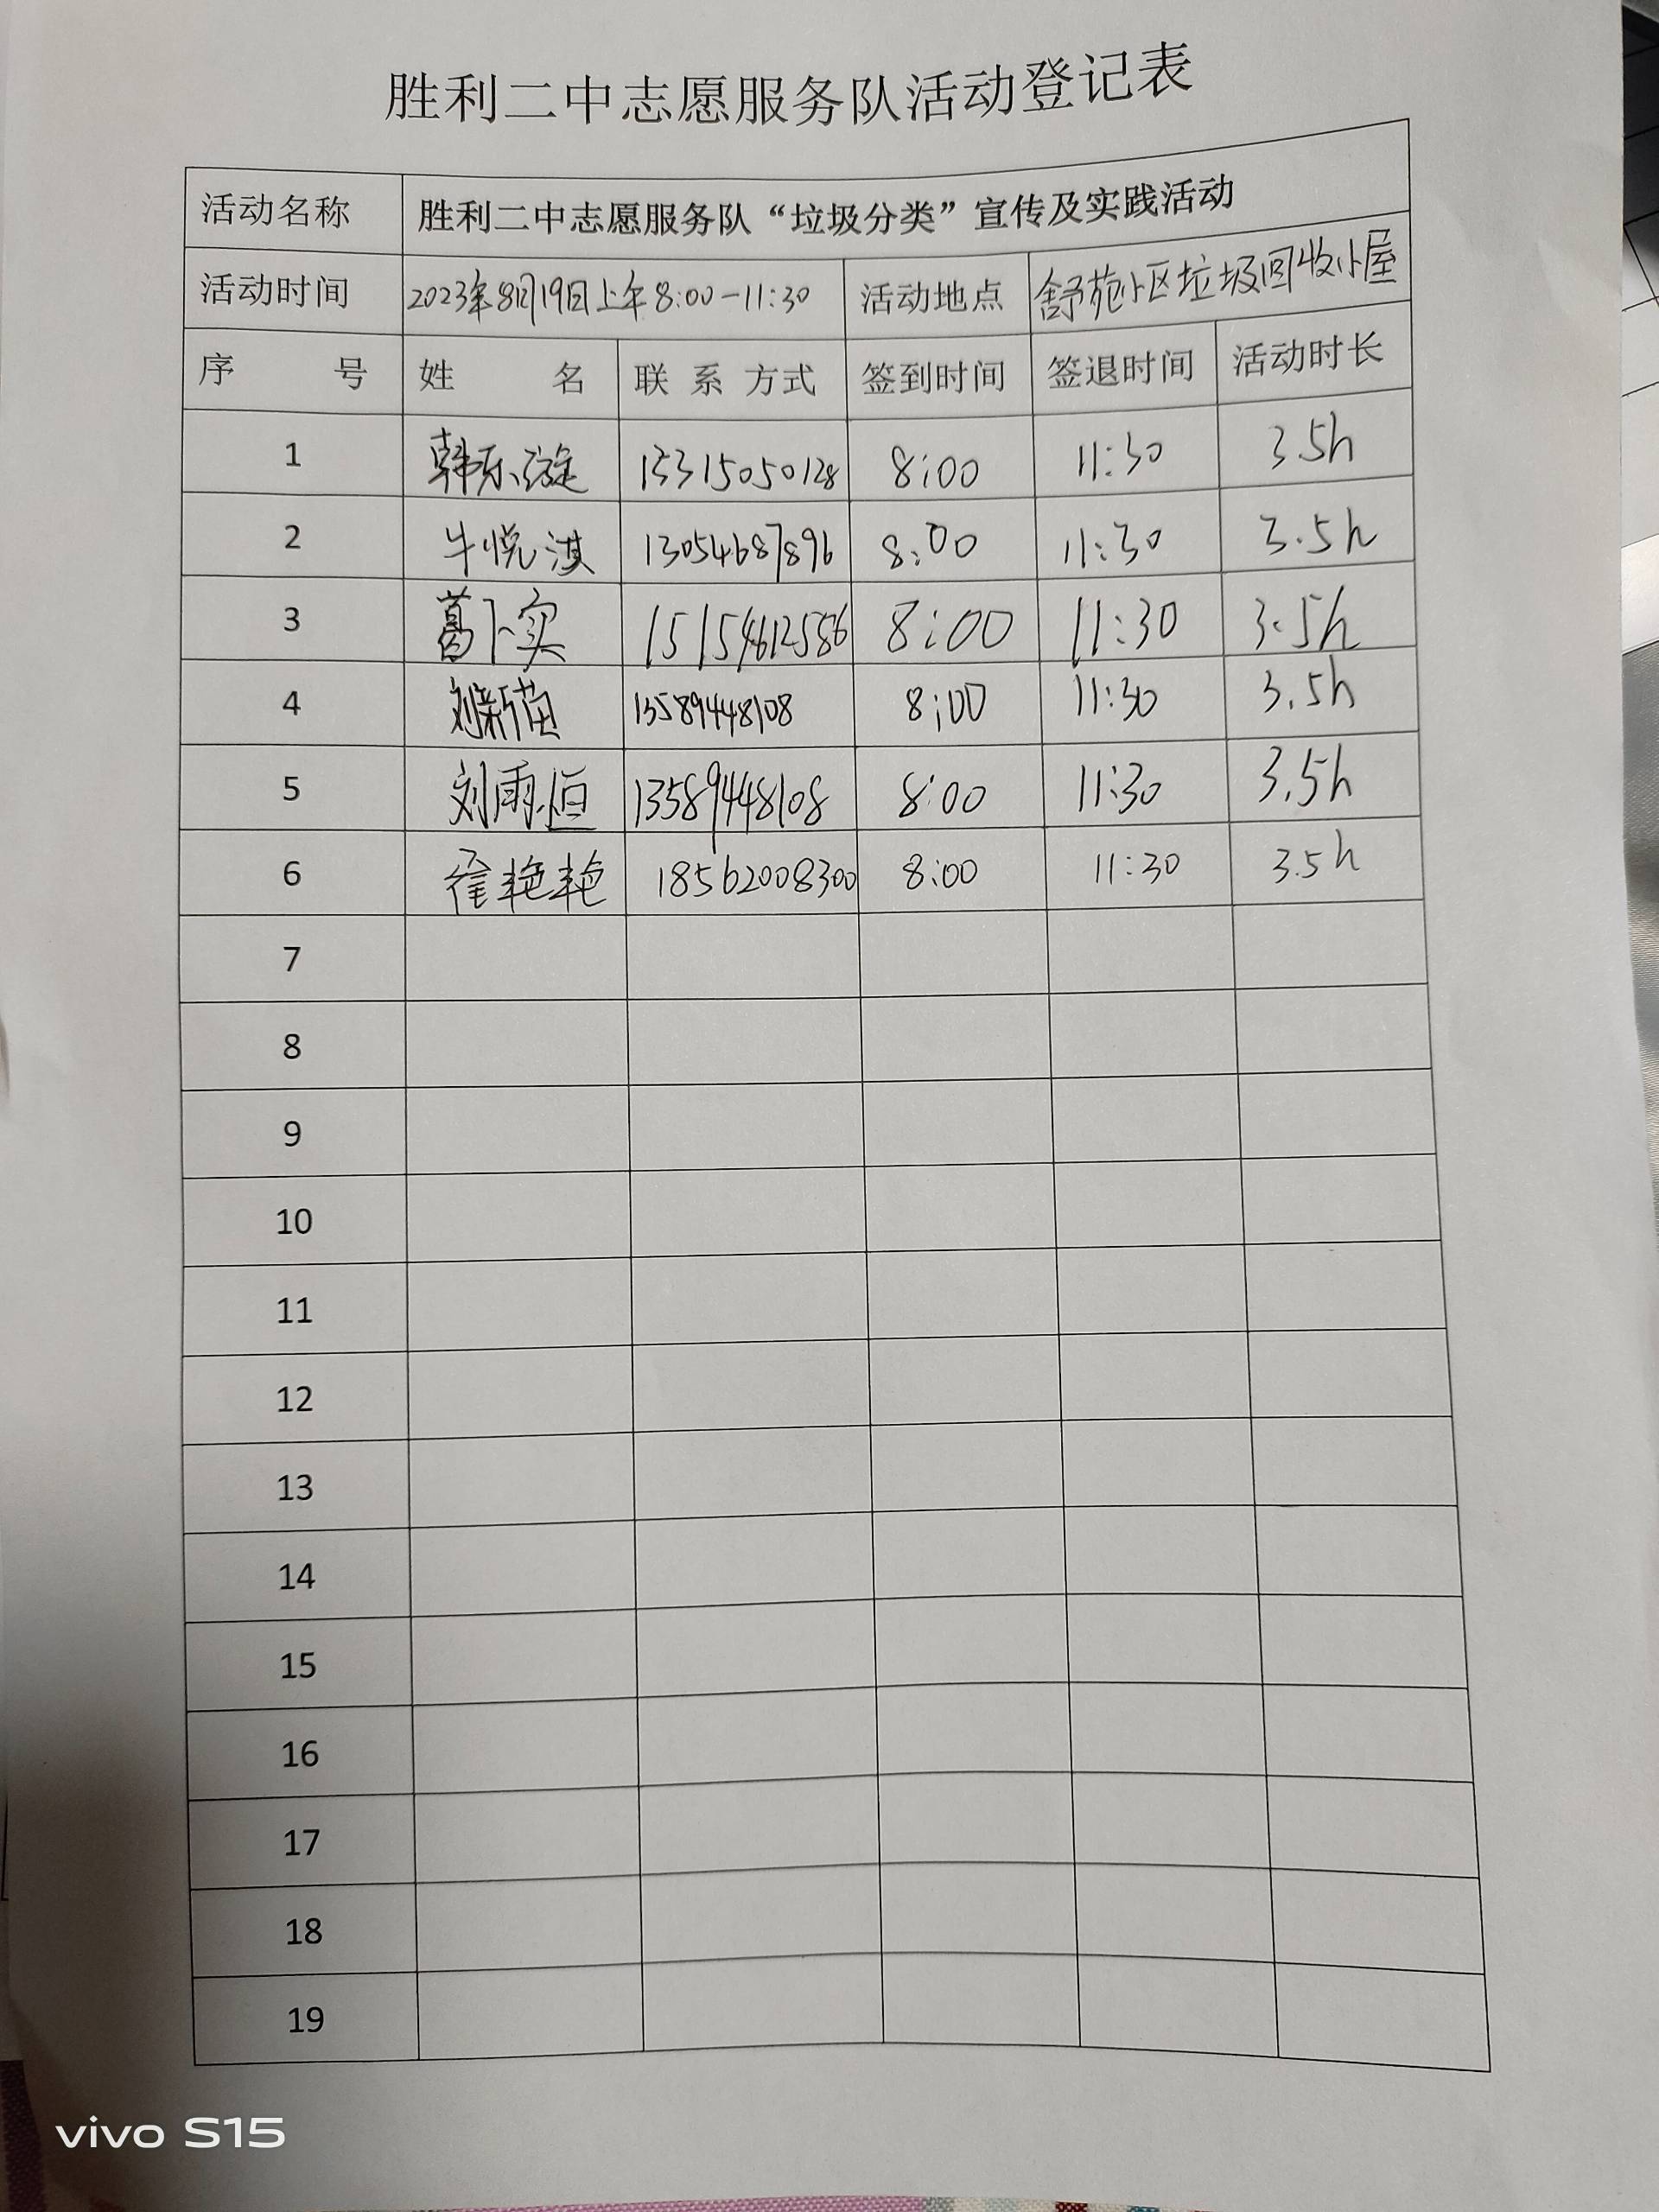 胜利二中志愿服务队活动登记表
活动名称 胜利二中志愿服务队“垃圾分类”宣传及实践活动
活动时间 2023年8月19日上午8:00-11:30 活动地点 舒苑小区垃圾回收小屋
序 号 姓 名 联系方式 签到时间 签退时间 活动时长
1 韩乐璇 13315050128 8:00 11:30 3.5h
2 牛悦淇 13054687896 8:00 11:30 3.5h
3 葛卜实 15154612586 8:00 11:30 3.5h
4 刘新苗 13589448108 8:00 11:30 3.5h
5 刘雨恒 13589448108 8:00 11:30 3.5h
6 艳艳 18562008300 8:00 11:30 3.5h
7
8
9
10
11
12
13
14
15
16
17
18
19
vivo S15